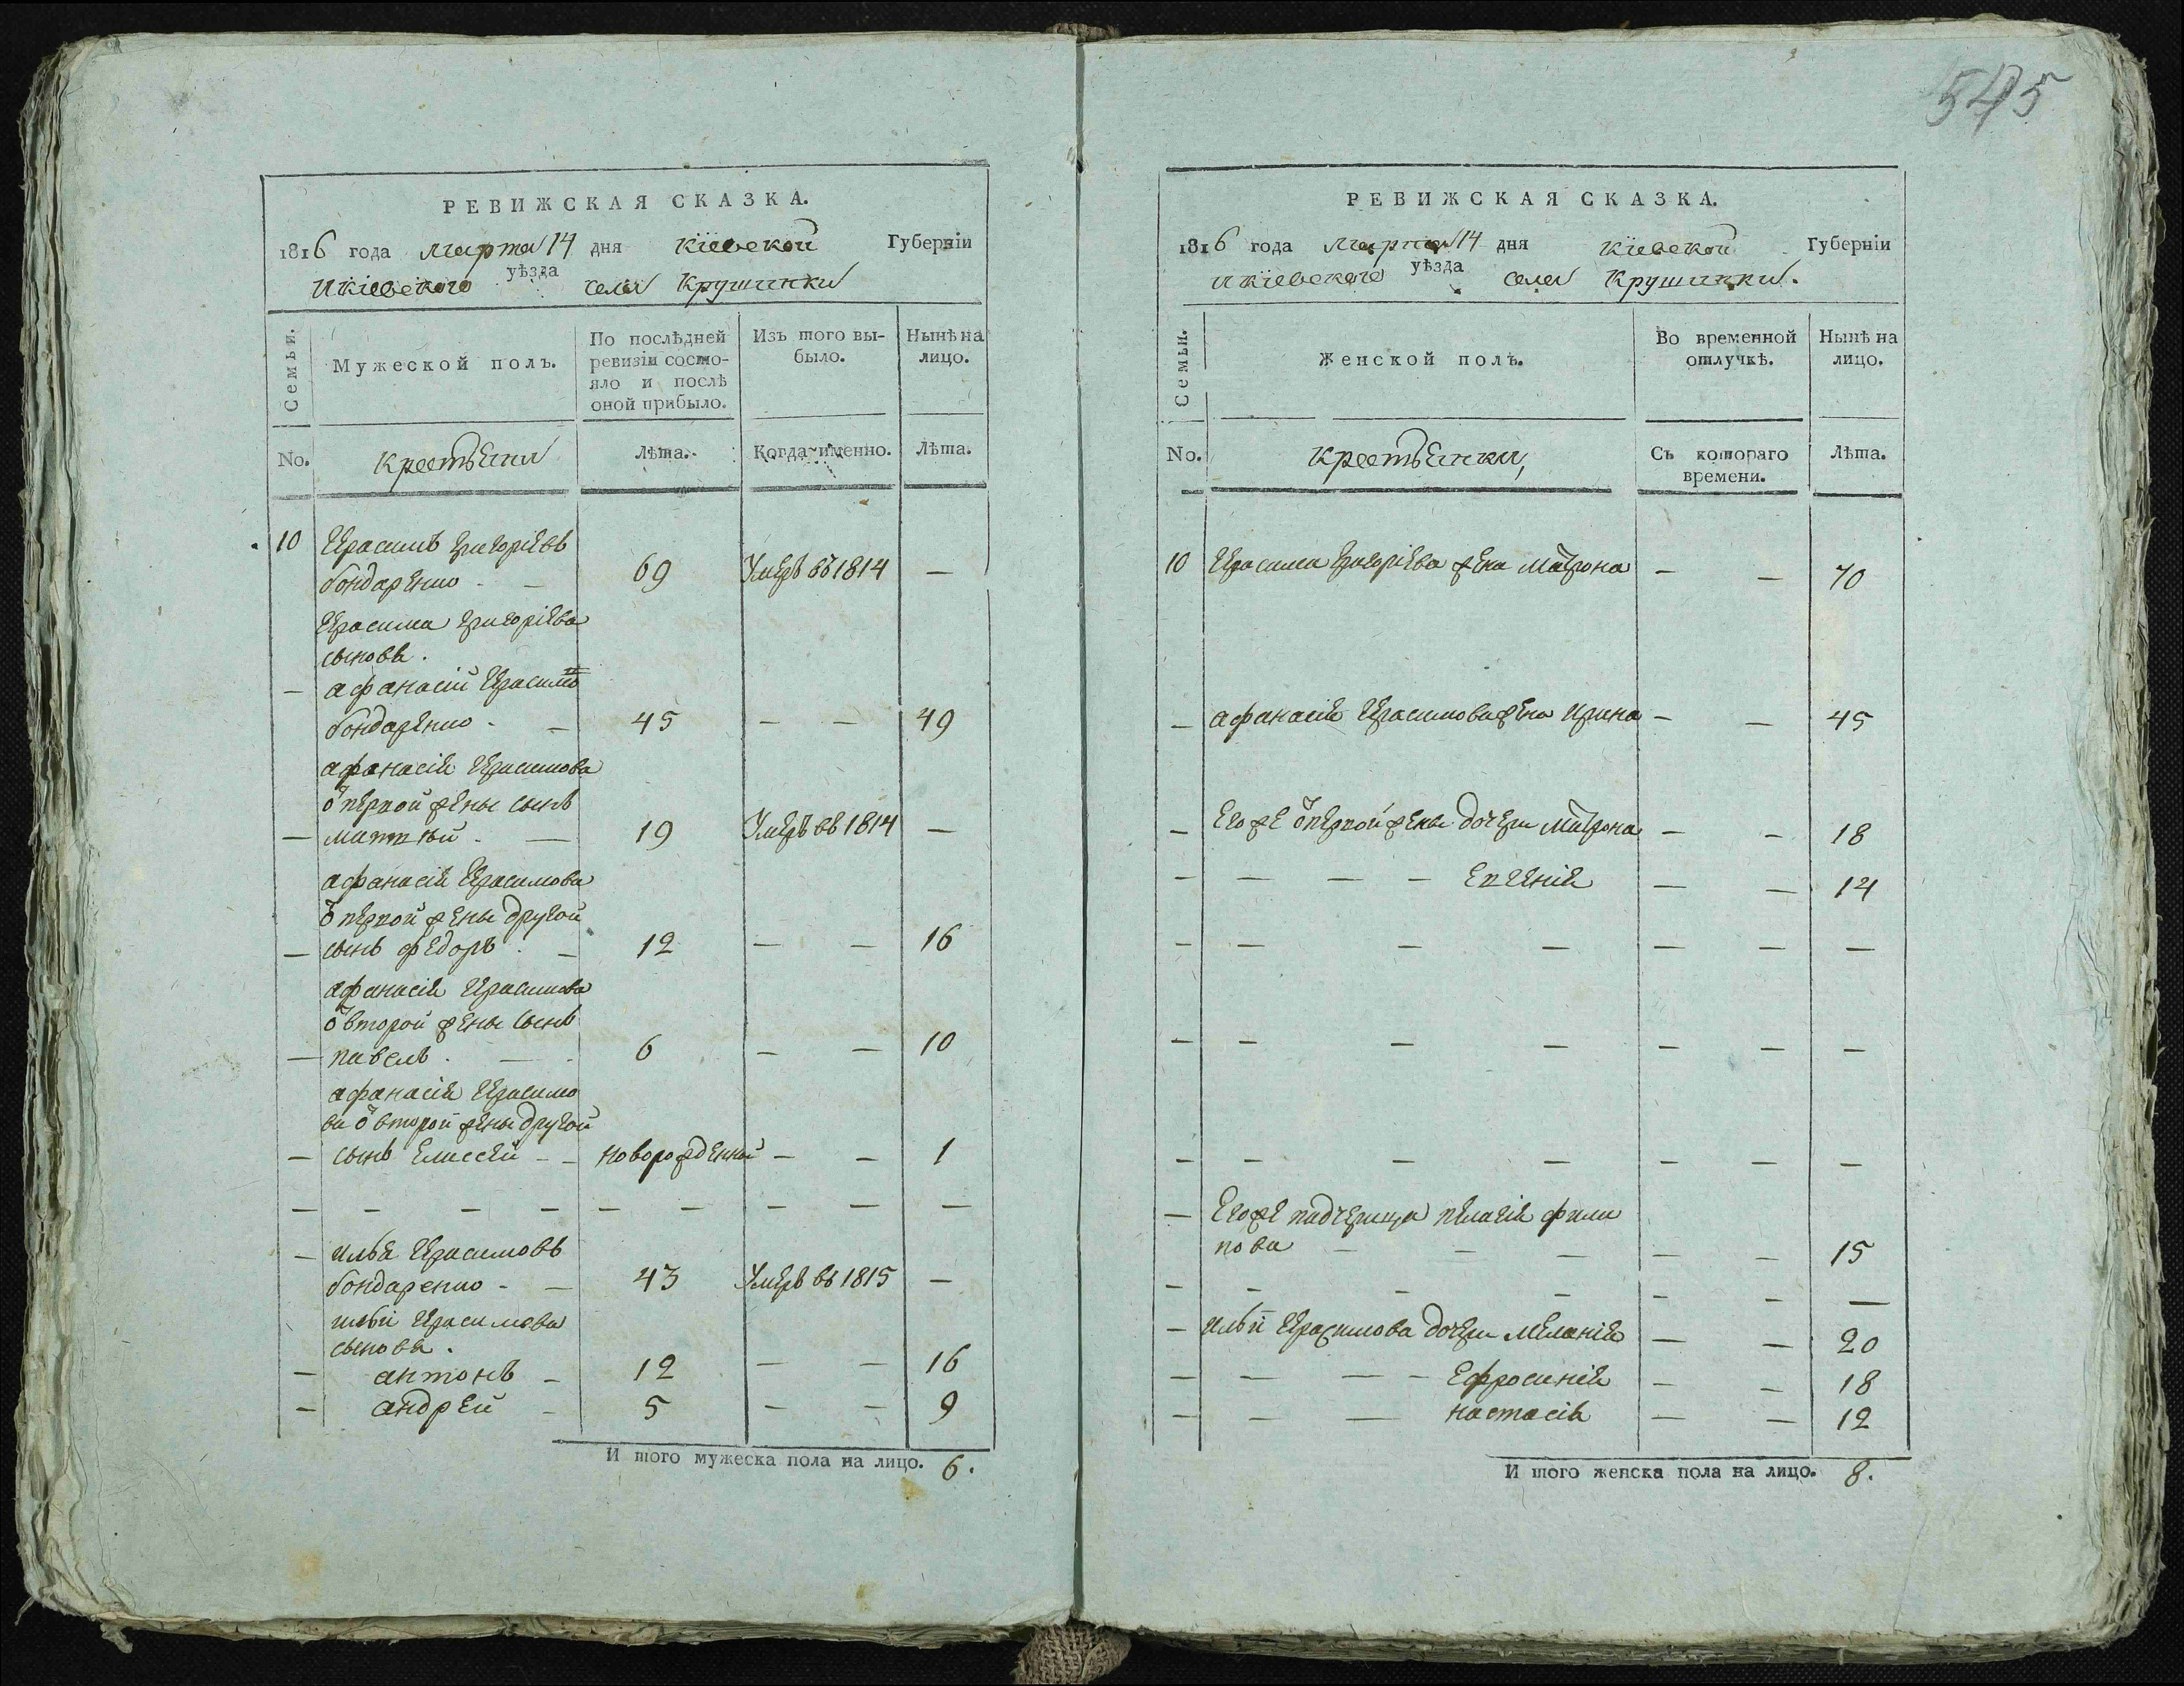 545
РЕВИЖСКАЯ СКАЗКА.
1816 года марта 14 дня Кіевской Губерніи
И Кіевского уѣзда села Крушинки
Семьи.
Мужеской полъ.
По послѣдней
ревизіи состо-
яло и послѣ
оной прибыло.
Изъ того вы-
было.
Нынѣ на
лицо.
No.
крестьяня
Лѣта.
Когда именно.
Лѣта.
10 Герасимъ Григоріевъ
бондаренко - — 69 Умеръ въ 1814 —
Герасима Григоріева
сыновя.
— афанасій Герасимо
бондаренко - — 45 — — 49
афанасія Герасимова
ѿ первой жены сынъ
— матвѣй - — 19 Умеръ въ 1814 —
афанасія Герасимова
ѿ первой жены другой
— сынъ федоръ - — 12 — — 16
афанасія Герасимова
ѿ второй жены сынъ
— павелъ - — 6 — — 10
афанасія Герасимо
ва ѿ второй жены другой
— сынъ Елисей - - новорожденной — — 1
— — — — — — — — —
— илья Герасимовъ
бондаренко - — 43 Умеръ въ 1815 —
ильи Герасимова
сыновя.
— антонъ - 12 — — 16
— андрей - 5 — — 9
И того мужеска пола на лицо. 6.
РЕВИЖСКАЯ СКАЗКА.
1816 года марта 14 дня Кіевской Губерніи
И Кіевского уѣзда села Крушинки.
Семьи.
Женской полъ.
Во временной
отлучкѣ.
Нынѣ на
лицо.
No.
крестьянки,
Съ котораго
времени.
Лѣта.
10 Герасима Григоріева жена Матрона — — 70
— афанасія Герасимова жена Ирина — — 45
— Егоже ѿ первой жены дочери Матрона — — 18
— — — — Евгенія — — 14
— — — — — — —
— — — — — — —
— — — — — — —
— Егоже падчерица пелагія фили
пова — — — — — 15
— — — — — — —
— Ильи Герасимова дочери Меланія — — 20
— — — — Ефросинія — — 18
— — — настасія — — 12
И того женска пола на лицо. 8.